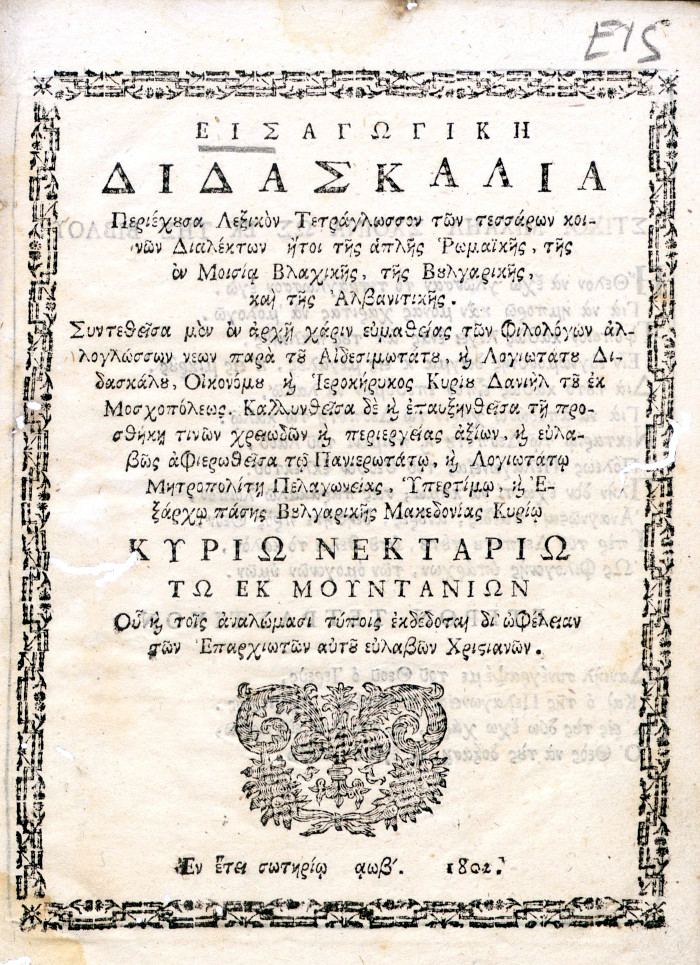 EIS
ΕΙΣΑΓΩΓΙΚΗ
ΔΙΔΑΣΚΑΛΙΑ
Περιέχουσα Λεξικὸν Τετράγλωσσον τῶν τεσσάρων κοι-
νῶν Διαλέκτων ἤτοι τῆς ἁπλῆς Ῥωμαϊκῆς, τῆς
ἐν Μοισίᾳ Βλαχικῆς, τῆς Βουλγαρικῆς,
καὶ τῆς Ἀλβανιτικῆς.
Συντεθεῖσα μὲν ἐν ἀρχῇ χάριν εὐμαθείας τῶν Φιλολόγων ἀλ-
λογλώσσων νεων παρὰ τοῦ Αἰδεσιμωτάτου, καὶ Λογιωτάτου Δι-
δασκάλου, Οἰκονόμου καὶ Ἱεροκήρυκος Κυρίου Δανιὴλ τοῦ ἐκ
Μοσχοπόλεως. Καλλυνθεῖσα δὲ καὶ ἐπαυξηνθεῖσα τῇ προ-
σθήκῃ τινῶν χρειωδῶν καὶ περιεργείας ἀξίων, καὶ εὐλα-
βῶς ἀφιερωθεῖσα τῷ Πανιερωτάτῳ, καὶ Λογιωτάτῳ
Μητροπολίτῃ Πελαγωνείας, Ὑπερτίμῳ, καὶ Ἐ-
ξάρχῳ πάσης Βουλγαρικῆς Μακεδονίας Κυρίῳ
ΚΥΡΙΩ ΝΕΚΤΑΡΙΩ
ΤΩ ΕΚ ΜΟΥΝΤΑΝΙΩΝ
Οὗ καὶ τοῖς ἀναλώμασι τύποις ἐκδέδοται δι' ὠφέλειαν
τῶν Ἐπαρχιωτῶν αὐτοῦ εὐλαβῶν Χριστιανῶν.
Ἐν ἔτει σωτηρίῳ αωβ'. 1802.